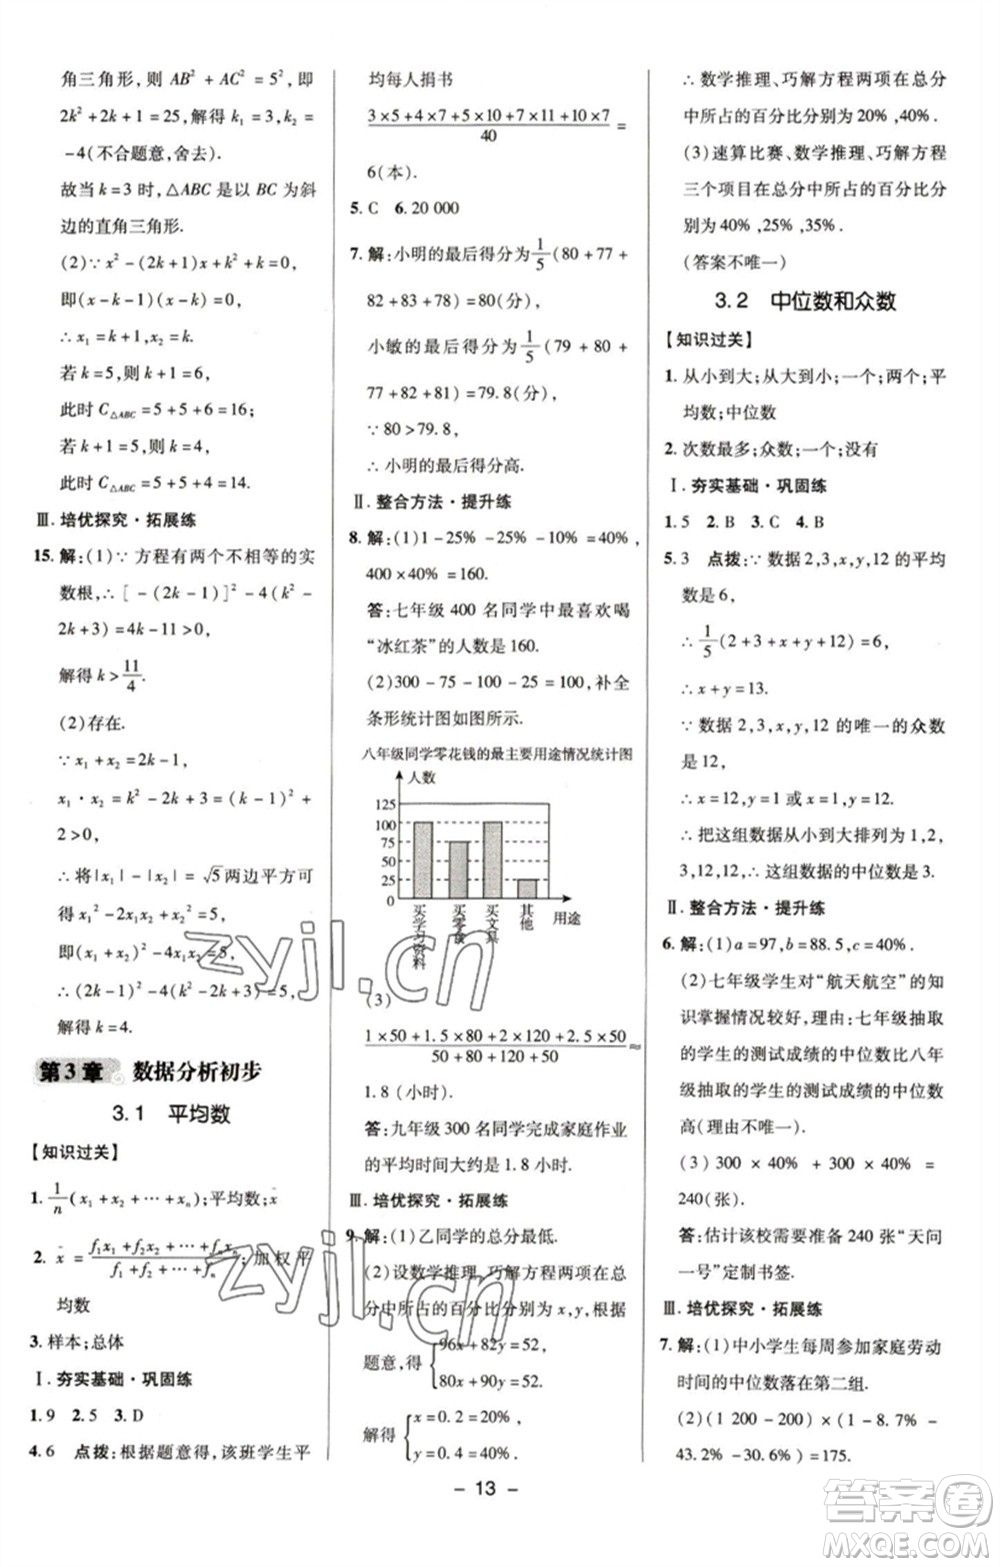 角三角形,则 AB² + AC² = 5²,即
2k² + 2k + 1 = 25,解得 k₁ = 3,k₂ =
-4(不合题意,舍去).
故当 k = 3 时,△ABC 是以 BC 为斜
边的直角三角形.
(2)∵ x² - (2k + 1)x + k² + k = 0,
即(x - k - 1)(x - k) = 0,
∴ x₁ = k + 1,x₂ = k.
若 k = 5,则 k + 1 = 6,
此时 C△ABC = 5 + 5 + 6 = 16;
若 k + 1 = 5,则 k = 4,
此时 C△ABC = 5 + 5 + 4 = 14.
Ⅲ. 培优探究·拓展练
15. 解:(1)∵ 方程有两个不相等的实
数根,∴ [ - (2k - 1)]² - 4(k² -
2k + 3) = 4k - 11 > 0,
解得 k > 11/4.
(2)存在.
∵ x₁ + x₂ = 2k - 1,
x₁ · x₂ = k² - 2k + 3 = (k - 1)² +
2 > 0,
∴ 将|x₁| - |x₂| = √5 两边平方可
得 x₁² - 2x₁x₂ + x₂² = 5,
即(x₁ + x₂)² - 4x₁x₂ = 5,
∴ (2k - 1)² - 4(k² - 2k + 3) = 5,
解得 k = 4.
第 3 章 数据分析初步
3.1 平均数
【知识过关】
1. 1/n (x₁ + x₂ + ··· + xₙ);平均数;x̄
2. x̄ = (f₁x₁ + f₂x₂ + ··· + fₙxₙ)/(f₁ + f₂ + ··· + fₙ);加权平
均数
3. 样本;总体
Ⅰ. 夯实基础·巩固练
1. 9 2. 5 3. D
4. 6 点拨:根据题意得,该班学生平
均每人捐书
(3 × 5 + 4 × 7 + 5 × 10 + 7 × 11 + 10 × 7)/40 =
6(本).
5. C 6. 20 000
7. 解:小明的最后得分为 1/5 (80 + 77 +
82 + 83 + 78) = 80(分),
小敏的最后得分为 1/5 (79 + 80 +
77 + 84 + 79) = 79.8(分),
∵ 80 > 79.8,
∴ 小明的最后得分高.
Ⅱ. 整合方法·提升练
8. 解:(1)1 - 25% - 25% - 10% = 40%,
400 × 40% = 160.
答:七年级 400 名同学中最喜欢喝
“冰红茶”的人数是 160.
(2)300 - 75 - 100 - 25 = 100,补全
条形统计图如图所示.
八年级同学零花钱的最主要用途情况统计图
人数
125
100
75
50
25
0
买学习资料 买零食 买文具 其他 用途
(3)
(1 × 50 + 1.5 × 80 + 2 × 120 + 2.5 × 50)/(50 + 80 + 120 + 50) ≈
1.8 (小时).
答:九年级 300 名同学完成家庭作业
的平均时间大约是 1.8 小时.
Ⅲ. 培优探究·拓展练
9. 解:(1)乙同学的总分最低.
(2)设数学推理、巧解方程两项在总
分中所占的百分比分别为 x,y,根据
题意,得 { 96x + 82y = 52,
80x + 90y = 52.
解得 { x = 0.2 = 20%,
y = 0.4 = 40%.
∴ 数学推理、巧解方程两项在总分
中所占的百分比分别为 20%,40%.
(3)速算比赛、数学推理、巧解方程
三个项目在总分中所占的百分比分
别为 40%,25%,35%.
(答案不唯一)
3.2 中位数和众数
【知识过关】
1. 从小到大;从大到小;一个;两个;平
均数;中位数
2. 次数最多;众数;一个;没有
Ⅰ. 夯实基础·巩固练
1. 5 2. B 3. C 4. B
5. 3 点拨:∵ 数据 2,3,x,y,12 的平均
数是 6,
∴ 1/5 (2 + 3 + x + y + 12) = 6,
∴ x + y = 13.
∵ 数据 2,3,x,y,12 的唯一的众数
是 12,
∴ x = 12,y = 1 或 x = 1,y = 12.
∴ 把这组数据从小到大排列为 1,2,
3,12,12,∴ 这组数据的中位数是 3.
Ⅱ. 整合方法·提升练
6. 解:(1)a = 97,b = 88.5,c = 40%.
(2)七年级学生对“航天航空”的知
识掌握情况较好,理由:七年级抽取
的学生的测试成绩的中位数比八年
级抽取的学生的测试成绩的中位数
高(理由不唯一).
(3) 300 × 40% + 300 × 40% =
240(张).
答:估计该校需要准备 240 张“天问
一号”定制书签.
Ⅲ. 培优探究·拓展练
7. 解:(1)中小学生每周参加家庭劳动
时间的中位数落在第二组.
(2)(1 200 - 200) × (1 - 8.7% -
43.2% - 30.6%) = 175.
- 13 -
zyjl.cn
zyjl.cn
答案圈
MXQE.COM